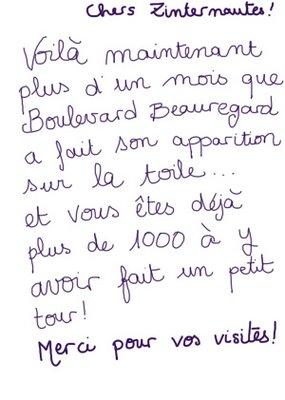 Chers Zinternautes!
Voilà maintenant
plus d'un mois que
Boulevard Beauregard
a fait son apparition
sur la toile...
et vous êtes déjà
plus de 1000 à y
avoir fait un petit
tour!
Merci pour vos visites!